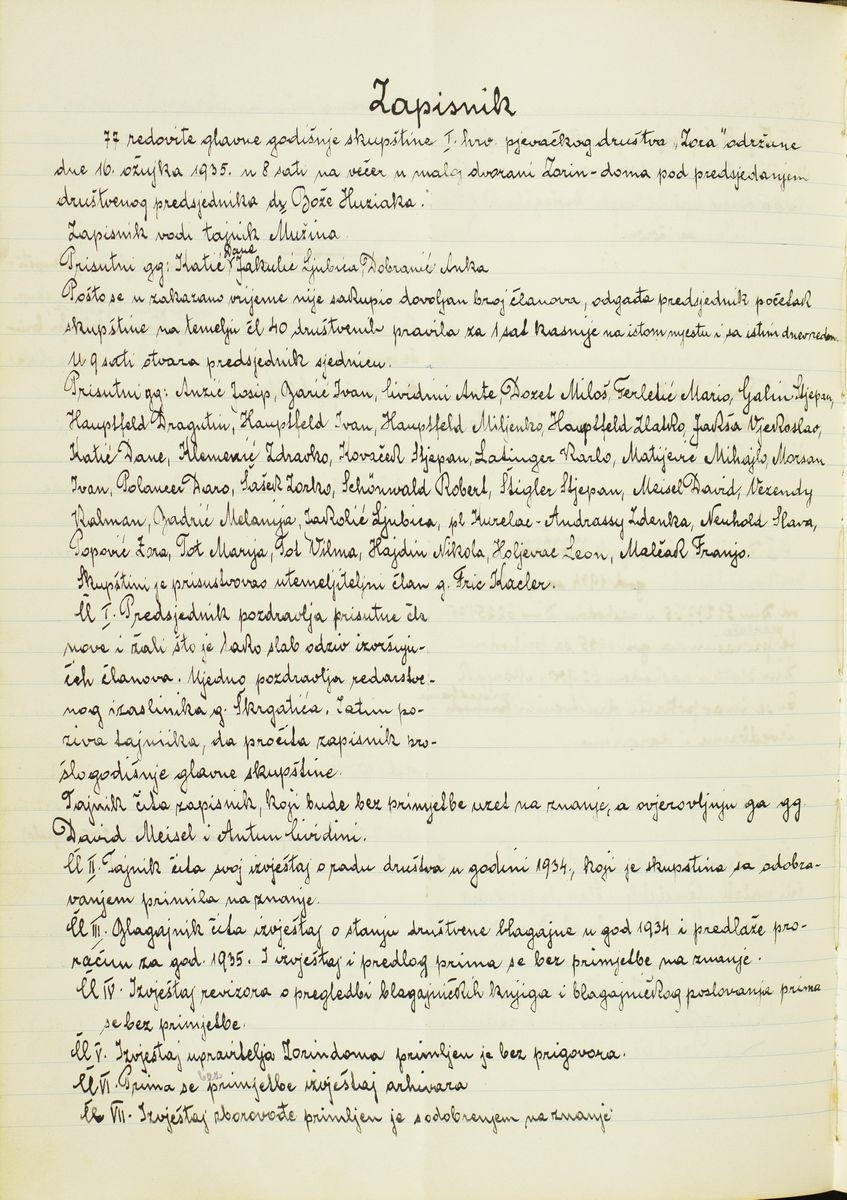 Zapisnik
77 redovite glavne godišnje skupštine I. hrv. pjevačkog društva „Zora" održane
dne 16. ožujka 1935. u 8 sati na večer u maloj dvorani Zorin-doma pod predsjedanjem
društvenog predsjednika dr Bože Huziaka.
Zapisnik vodi tajnik Mužina
Prisutni gg: Katić Dane Jakulić Ljubica, Dobranić Anka
Pošto se u zakazano vrijeme nije sakupio dovoljan broj članova, odgađa predsjednik početak
skupštine na temelju čl 40 društvenih pravila za 1 sat kasnije na istom mjestu i sa istim dnevredom.
U 9 sati otvara predsjednik sjednicu.
Prisutni gg: Anzić Josip, Barić Ivan, Cividini Ante, Dozet Miloš, Ferletić Mario, Galin Stjepan,
Hauptfeld Dragutin, Hauptfeld Ivan, Hauptfeld Miljenko, Hauptfeld Zlatko, Jakša Vjekoslav,
Katić Dane, Klemenić Zdravko, Kovaček Stjepan, Latinger Karlo, Matijević Mihajlo, Morsan
Ivan, Polancer Daro, Šašek Zorko, Schönwald Robert, Štigler Stjepan, Meisel David, Vezendy
Kalman, Badrić Melanija, Jakolić Ljubica, pl Kurelac-Andrassy Zdenka, Neuhold Slava,
Popović Zora, Tot Marija, Tot Vilma, Hajdin Nikola, Holjevac Leon, Malčak Franjo.
Skupštini je prisustvovao utemeljiteljni član g. Fric Kacler.
Čl I. Predsjednik pozdravlja prisutne čla
nove i žali što je tako slab odziv izvršuju-
ćih članova. Ujedno pozdravlja redarstve-
nog izaslinika g. Škrgatića. Zatim po-
ziva tajnika, da pročita zapisnik pro-
šlogodišnje glavne skupštine.
Tajnik čita zapisnik, koji bude bez primjetbe uzet na znanje, a ovjerovljuju ga gg.
David Meisel i Antun Cividini.
Čl II. Tajnik čita svoj izvještaj o radu društva u godini 1934., koji je skupština sa odobra-
vanjem primila na znanje.
Čl III. Blagajnik čita izvještaj o stanju društvene blagajne u god 1934 i predlaže pro-
račun za god. 1935. I izvještaj i predlog prima se bez primjetbe na znanje.
Čl IV. Izvještaj revizora o pregledbi blagajničkih knjiga i blagajničkog poslovanja prima
se bez primjetbe.
Čl V. Izvještaj upravitelja Zorindoma primljen je bez prigovora.
Čl VI. Prima se bez primjetbe izvještaj arhivara
Čl VII. Izvještaj zborovođe primljen je s odobrenjem na znanje